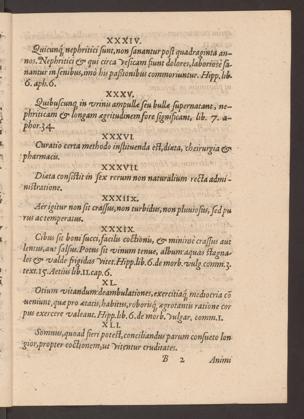 XXXIV.
Quicunq́; nephritici sunt, non sanantur post quadraginta an-
nos. Nephritici & qui circa vesicam fiunt dolores, laboriosè sa-
nantur in senibus, imò his passionibus commoriuntur. Hipp. lib.
6. aph. 6.
XXXV.
Quibuscunq; in vrinis ampullæ seu bullæ supernatant, ne-
phriticam & longam ægritudinem fore significant, lib. 7. a-
phor. 34.
XXXVI.
Curatio certa methodo instituenda est, diæta, cheirurgia &
pharmacia.
XXXVII.
Diæta consistit in sex rerum non naturalium recta admi-
nistratione.
XXXIIX.
Aër igitur non sit crassus, non turbidus, non pluviosus, sed pu
rus ac temperatus.
XXXIX.
Cibus sit boni succi, facilis coctionis, & minimè crassus aut
lentus, aut salsus. Potus sit vinum tenue, album: aquas stagna-
les & valde frigidas vitet. Hipp. lib. 6. de morb. vulg. comm. 3.
text. 15. Aetius lib. 11. cap. 6.
XL.
Otium vitandum: deambulationes, exercitiaq́; mediocria cō
veniunt, quæ pro ætatis, habitus, roborisq́; ægrotantis ratione cor
pus exercere valeant. Hipp. lib. 6. de morb. vulgar. comm. 1.
XLI.
Somnus, quoad fieri potest, conciliandus parum consueto lon
gior, propter coctionem, ut vitentur cruditates.
B 2 Animi